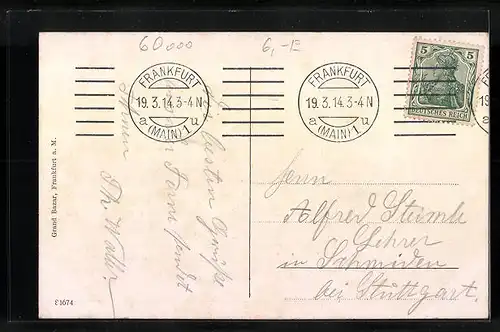 60000
6,-E
FRANKFURT
19.3.14.3-4N
a u
(MAIN) 1.
FRANKFURT
19.3.14.3-4N
a u
(MAIN) 1.
5 5
DEUTSCHES REICH
Die besten Grüße
Ferne sendet
Th. Walter
Herrn
Alfred Stümle
Lehrer
in Schmiden
bei Stuttgart.
Grand Bazar, Frankfurt a. M.
E3074